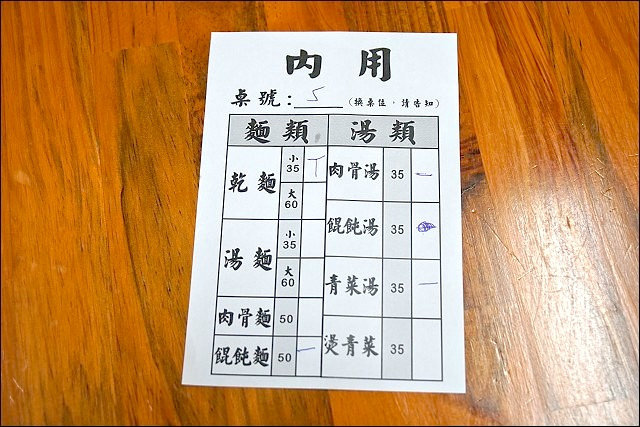 內用
桌號：5 (換桌位，請告知)
麵類 湯類
乾麵 小 35 丅
大 60
湯麵 小 35
大 60
肉骨麵 50
餛飩麵 50 一
肉骨湯 35 一
餛飩湯 35
青菜湯 35 一
燙青菜 35